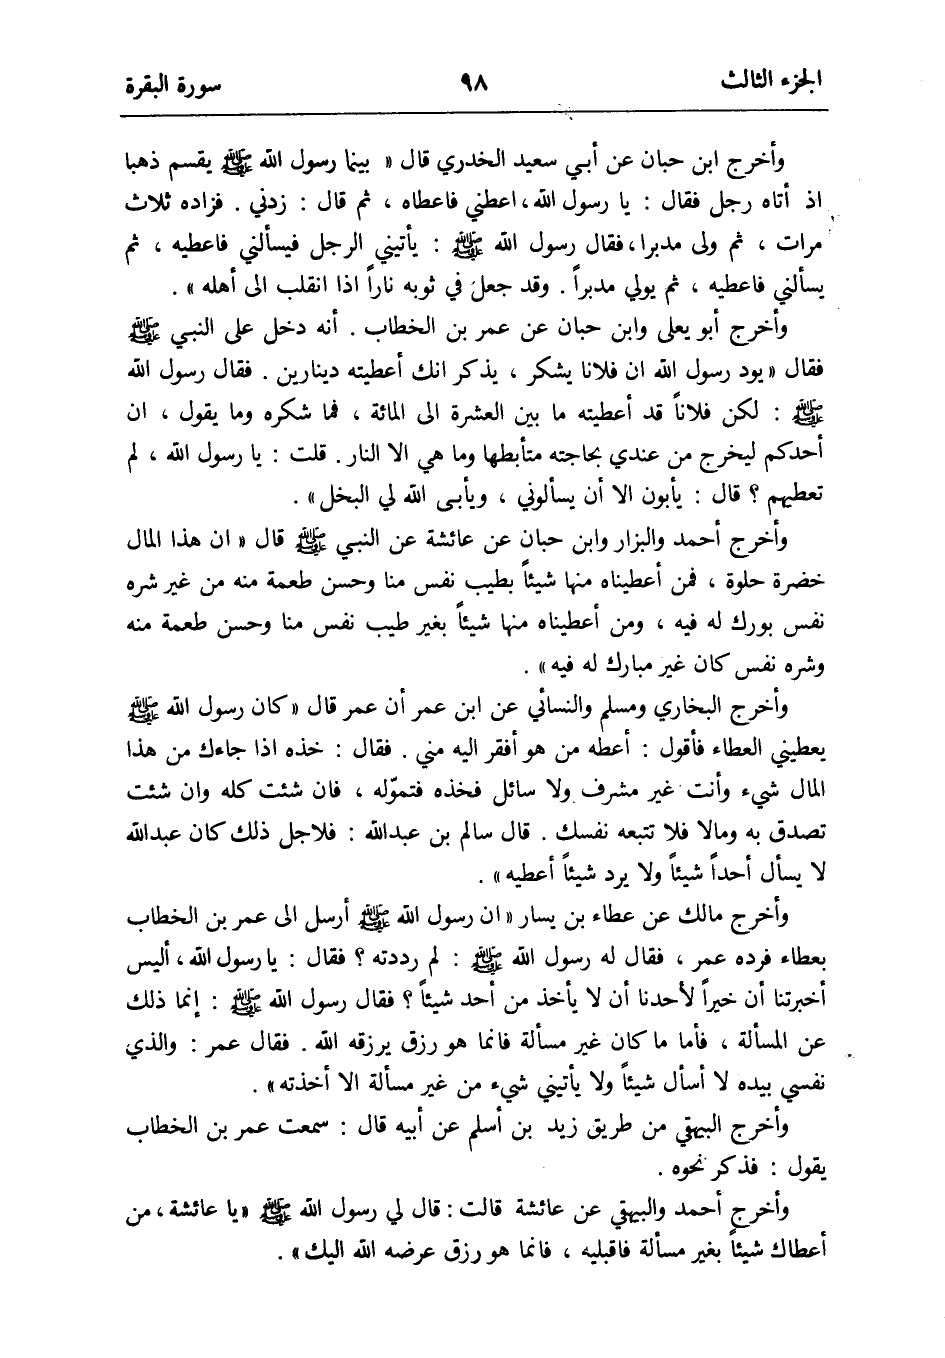 الجزء الثالث ٩٨ سورة البقرة
وأخرج ابن حبان عن أبي سعيد الخدري قال « بينما رسول الله ﷺ يقسم ذهبا
اذ أتاه رجل فقال : يا رسول الله، اعطني فاعطاه ، ثم قال : زدني . فزاده ثلاث
مرات ، ثم ولى مدبرا، فقال رسول الله ﷺ : يأتيني الرجل فيسألني فاعطيه ، ثم
يسألني فاعطيه ، ثم يولي مدبراً . وقد جعل في ثوبه ناراً اذا انقلب الى أهله » .
وأخرج أبو يعلى وابن حبان عن عمر بن الخطاب . أنه دخل على النبي ﷺ
فقال « يود رسول الله ان فلانا يشكر ، يذكر انك أعطيته دينارين . فقال رسول الله
ﷺ : لكن فلاناً قد أعطيته ما بين العشرة الى المائة ، فما شكره وما يقول ، ان
أحدكم ليخرج من عندي بحاجته متأبطها وما هي الا النار . قلت : يا رسول الله ، لم
تعطيهم ؟ قال : يأبون الا أن يسألوني ، ويأبى الله لي البخل» .
وأخرج أحمد والبزار وابن حبان عن عائشة عن النبي ﷺ قال « ان هذا المال
خضرة حلوة ، فمن أعطيناه منها شيئاً بطيب نفس منا وحسن طعمة منه من غير شره
نفس بورك له فيه ، ومن أعطيناه منها شيئاً بغير طيب نفس منا وحسن طعمة منه
وشره نفس كان غير مبارك له فيه» .
وأخرج البخاري ومسلم والنسائي عن ابن عمر أن عمر قال « كان رسول الله ﷺ
يعطيني العطاء فأقول : أعطه من هو أفقر اليه مني . فقال : خذه اذا جاءك من هذا
المال شيء وأنت غير مشرف ولا سائل فخذه فتموّله ، فان شئت كله وان شئت
تصدق به ومالا فلا تتبعه نفسك . قال سالم بن عبدالله : فلاجل ذلك كان عبدالله
لا يسأل أحداً شيئاً ولا يرد شيئاً أعطيه» .
وأخرج مالك عن عطاء بن يسار « ان رسول الله ﷺ أرسل الى عمر بن الخطاب
بعطاء فرده عمر ، فقال له رسول الله ﷺ : لم رددته ؟ فقال : يا رسول الله ، أليس
أخبرتنا أن خيراً لأحدنا أن لا يأخذ من أحد شيئاً ؟ فقال رسول الله ﷺ : إنما ذلك
عن المسألة ، فأما ما كان غير مسألة فانما هو رزق يرزقه الله . فقال عمر : والذي
نفسي بيده لا أسأل شيئاً ولا يأتيني شيء من غير مسألة الا أخذته» .
وأخرج البيهقي من طريق زيد بن أسلم عن أبيه قال : سمعت عمر بن الخطاب
يقول : فذكر نحوه .
وأخرج أحمد والبيهقي عن عائشة قالت : قال لي رسول الله ﷺ «يا عائشة ، من
أعطاك شيئاً بغير مسألة فاقبليه ، فانما هو رزق عرضه الله اليك» .